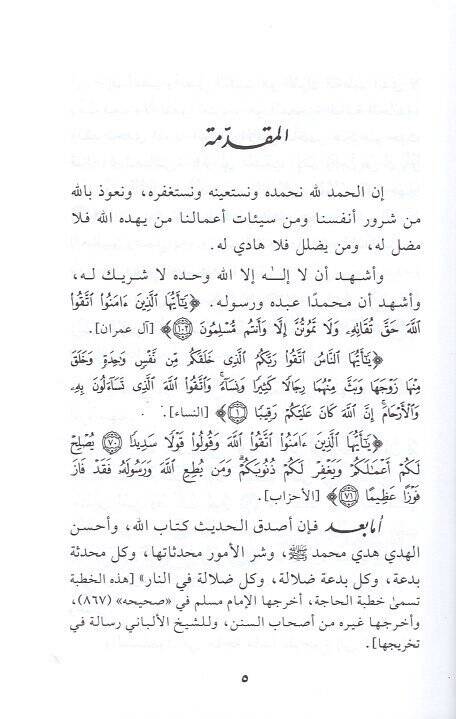 المقدّمة
إن الحمد لله نحمده ونستعينه ونستغفره، ونعوذ بالله
من شرور أنفسنا ومن سيئات أعمالنا من يهده الله فلا
مضل له، ومن يضلل فلا هادي له.
وأشهد أن لا إله إلا الله وحده لا شريك له،
وأشهد أن محمدًا عبده ورسوله. ﴿يَٰٓأَيُّهَا ٱلَّذِينَ ءَامَنُوا۟ ٱتَّقُوا۟
ٱللَّهَ حَقَّ تُقَالِهِۦ وَلَا تَمُوتُنَّ إِلَّا وَأَنتُم مُّسْلِمُونَ ١٠٢﴾ [آل عمران].
﴿يَٰٓأَيُّهَا ٱلنَّاسُ ٱتَّقُوا۟ رَبَّكُمُ ٱلَّذِى خَلَقَكُم مِّن نَّفْسٍ وَٰحِدَةٍ وَخَلَقَ
مِنْهَا زَوْجَهَا وَبَثَّ مِنْهُمَا رِجَالًا كَثِيرًا وَنِسَآءً ۚ وَٱتَّقُوا۟ ٱللَّهَ ٱلَّذِى تَسَآءَلُونَ بِهِۦ
وَٱلْأَرْحَامَ ۚ إِنَّ ٱللَّهَ كَانَ عَلَيْكُمْ رَقِيبًا ١﴾ [النساء].
﴿يَٰٓأَيُّهَا ٱلَّذِينَ ءَامَنُوا۟ ٱتَّقُوا۟ ٱللَّهَ وَقُولُوا۟ قَوْلًا سَدِيدًا ٧٠ يُصْلِحْ
لَكُمْ أَعْمَٰلَكُمْ وَيَغْفِرْ لَكُمْ ذُنُوبَكُمْ ۗ وَمَن يُطِعِ ٱللَّهَ وَرَسُولَهُۥ فَقَدْ فَازَ
فَوْزًا عَظِيمًا ٧١﴾ [الأحزاب].
أما بعد فإن أصدق الحديث كتاب الله، وأحسن
الهدي هدي محمد ﷺ، وشر الأمور محدثاتها، وكل محدثة
بدعة، وكل بدعة ضلالة، وكل ضلالة في النار» [هذه الخطبة
تسمىٰ خطبة الحاجة، أخرجها الإمام مسلم في «صحيحه» (٨٦٧)،
وأخرجها غيره من أصحاب السنن، وللشيخ الألباني رسالة في
تخريجها].
٥